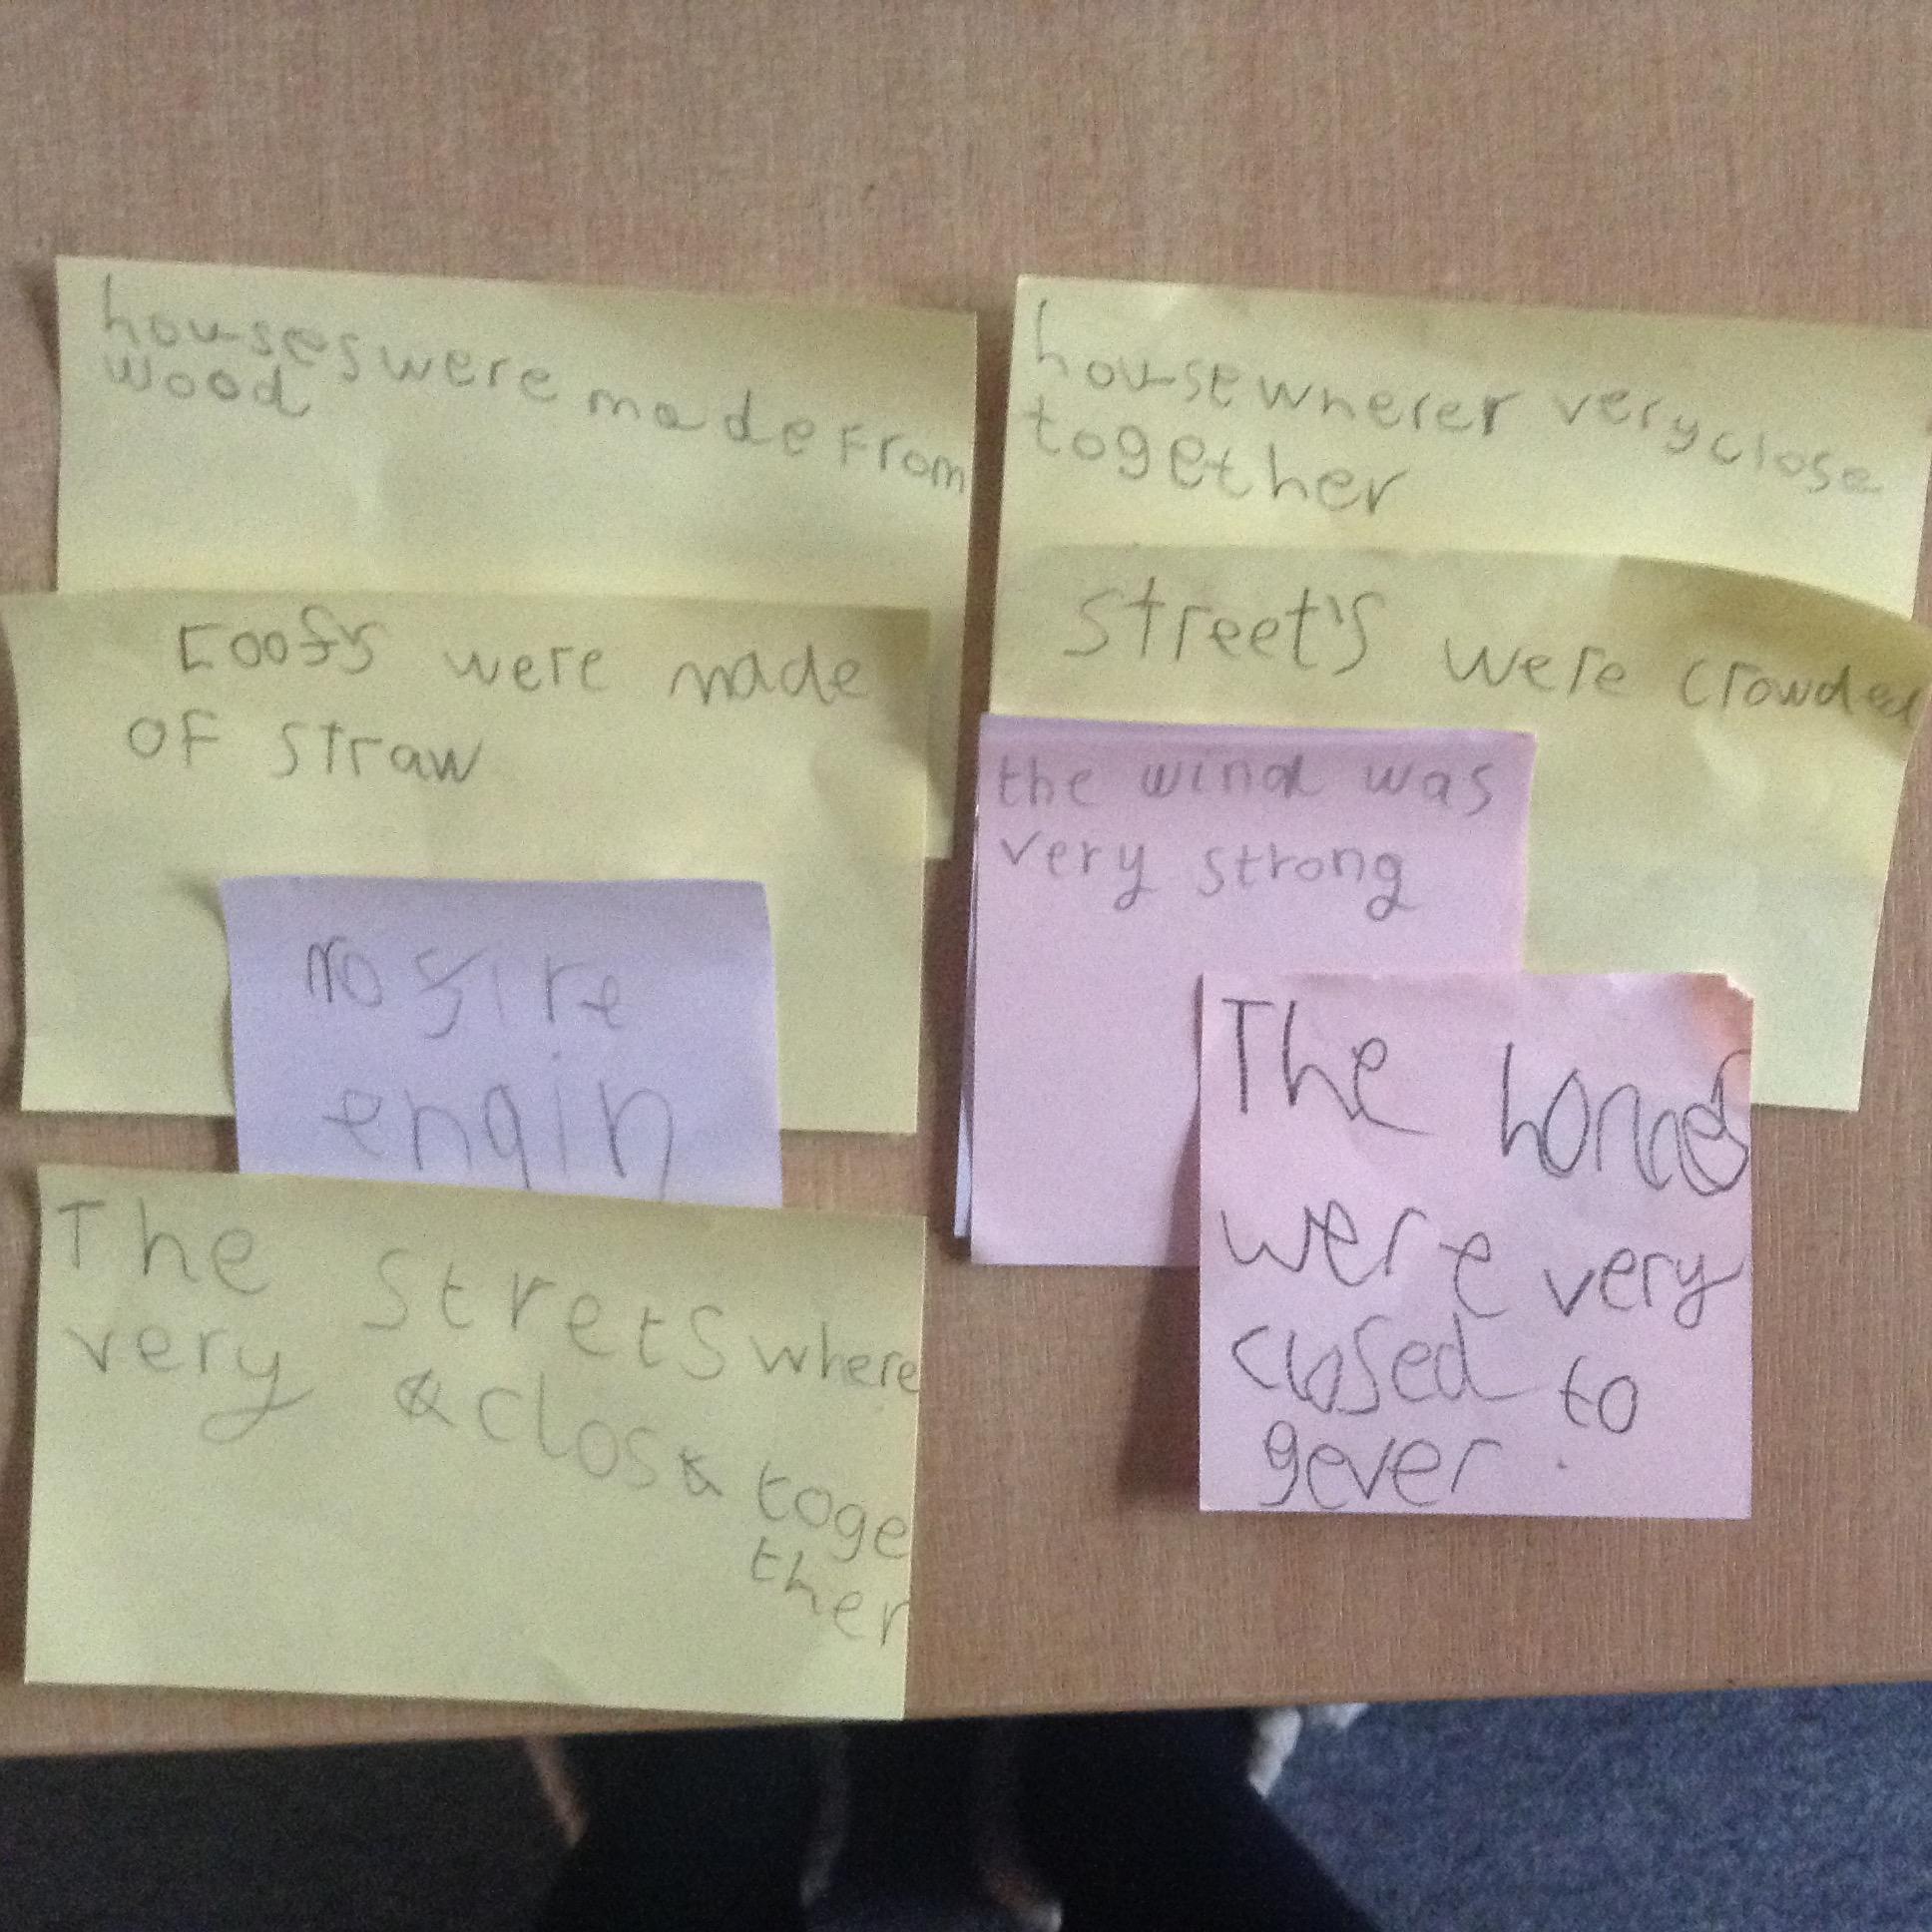 houses were made From
wood
roofs were made
OF straw
no fire
engin
The strets where
very close toge
ther
house wherer very close
together
street's were crowded
the wind was
very strong
The homes
were very
closed to
gever.